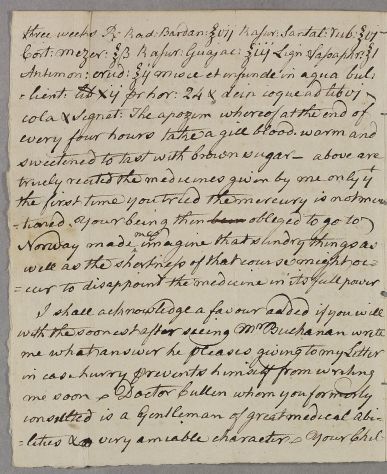 three weeks ℞ Rad: Bardan: ℥vij Rasur. Santal. Rub: ℥vj
Cort: Mezer: ℥ß Rasur: Guajac: ℥iij Lign. Sassaphr: ℥j
Antimon: crud: ℥ij misce et infunde in aqua bul-
-lient: lib xij per hor: 24 & dein coque ad lib vj
cola & signet: The apozem whereof at the end of
every four hours take a gill blood-warm and
sweetened to tast with brown sugar – above are
truely recited the medicines given by me only yt
the first time you tried the mercury is not men-
-tioned. Your being then obliged to go to
Norway made me imagine that sundry things as
well as the shortness of that course might oc-
-cur to disappoint the medicine in its full power
I shall acknowledge a favour added if you will
with the soonest after seeing Mr Buchanan write
me what answer he pleases giving to my Letter
in case hurry prevents himself from writing
me soon Doctor Cullen whom you formerly
consulted is a Gentleman of great medical abi-
-lities & a very amicable character Your Chil-